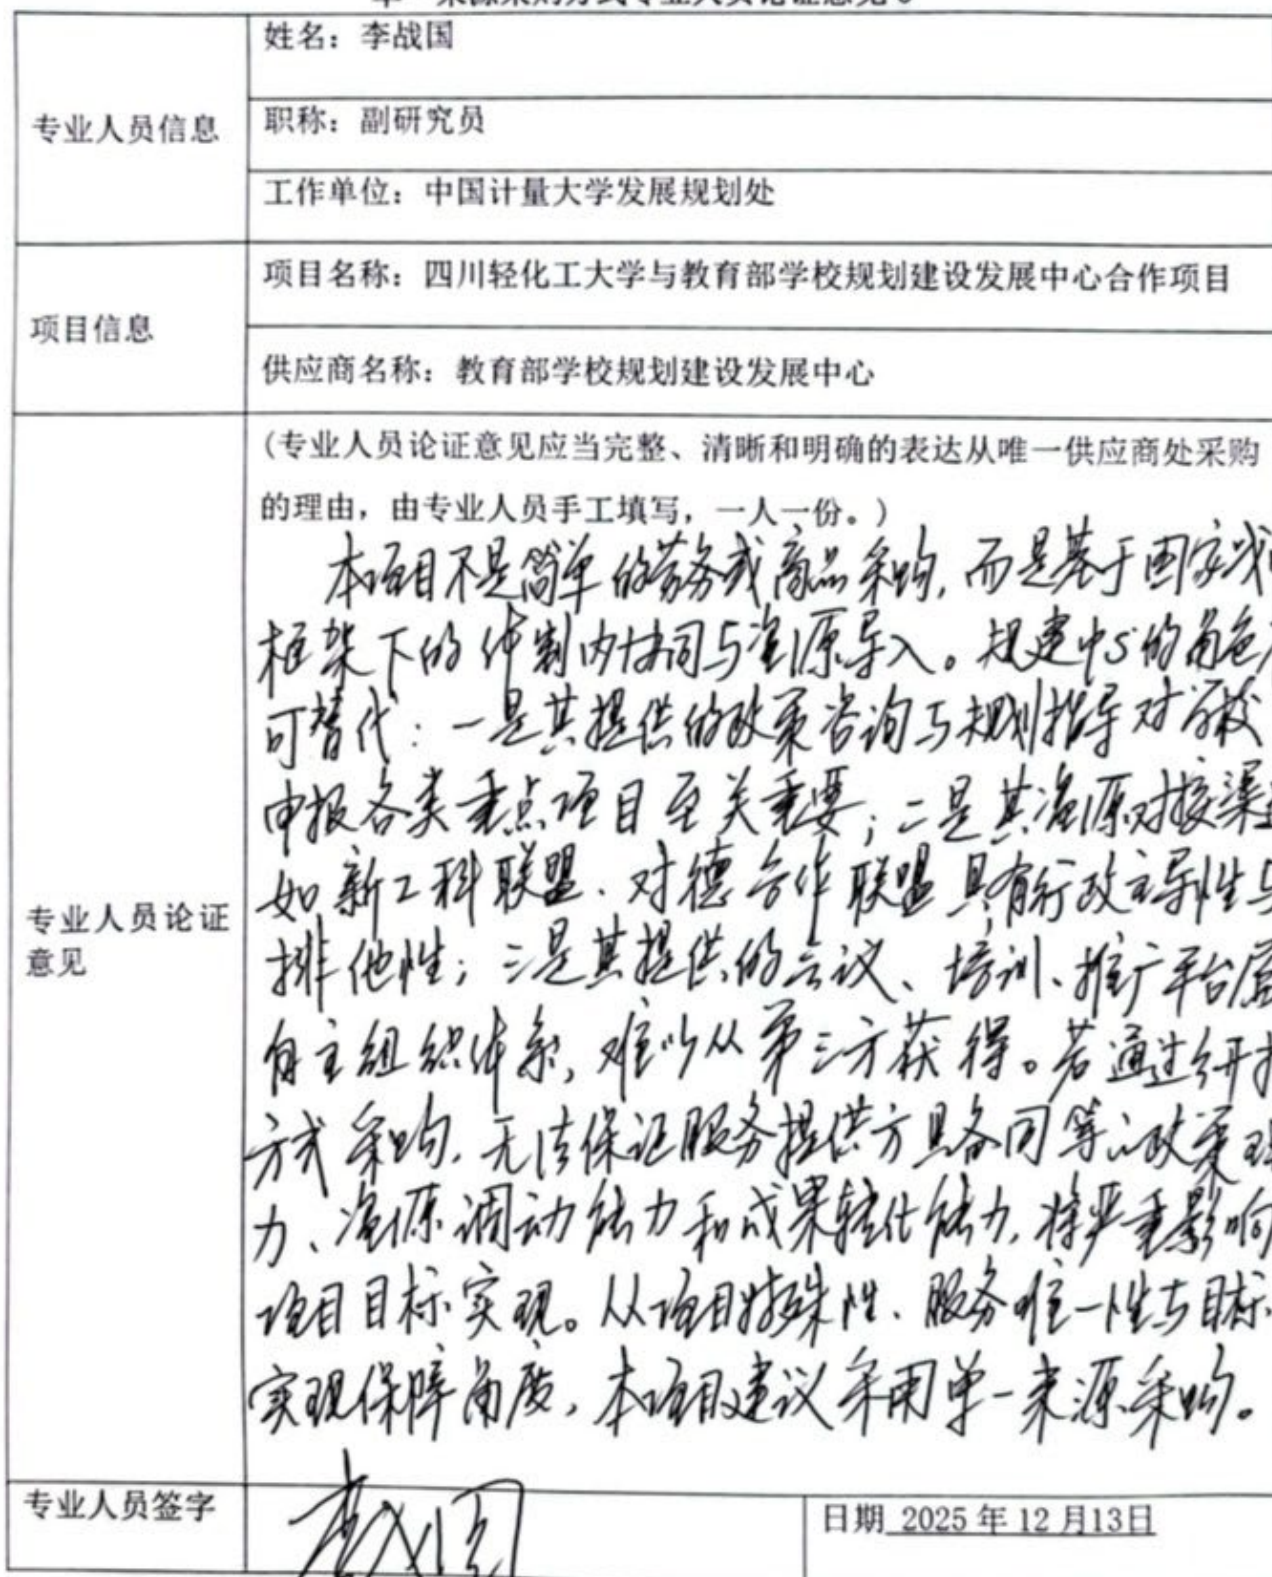 姓名：李战国
职称：副研究员
专业人员信息
工作单位：中国计量大学发展规划处
项目名称：四川轻化工大学与教育部学校规划建设发展中心合作项目
项目信息
供应商名称：教育部学校规划建设发展中心
(专业人员论证意见应当完整、清晰和明确的表达从唯一供应商处采购
的理由，由专业人员手工填写，一人一份。)
本项目不是简单的劳务或商品采购，而是基于国家战
框架下的体制内协同与资源导入。规建中心的角色
可替代：一是其提供的政策咨询与规划指导对学校
申报各类重点项目至关重要；二是其资源对接渠道
如新工科联盟、对德合作联盟具有行政主导性与
排他性；三是其提供的会议、培训、推广平台属
自主组织体系，难以从第三方获得。若通过公开招
方式采购，无法保证服务提供方具备同等政策理
力、资源调动能力和成果转化能力，将严重影响
项目目标实现。从项目特殊性、服务唯一性与目标
实现保障角度，本项目建议采用单一来源采购。
专业人员论证
意见
专业人员签字
李战国
日期 2025年12月13日